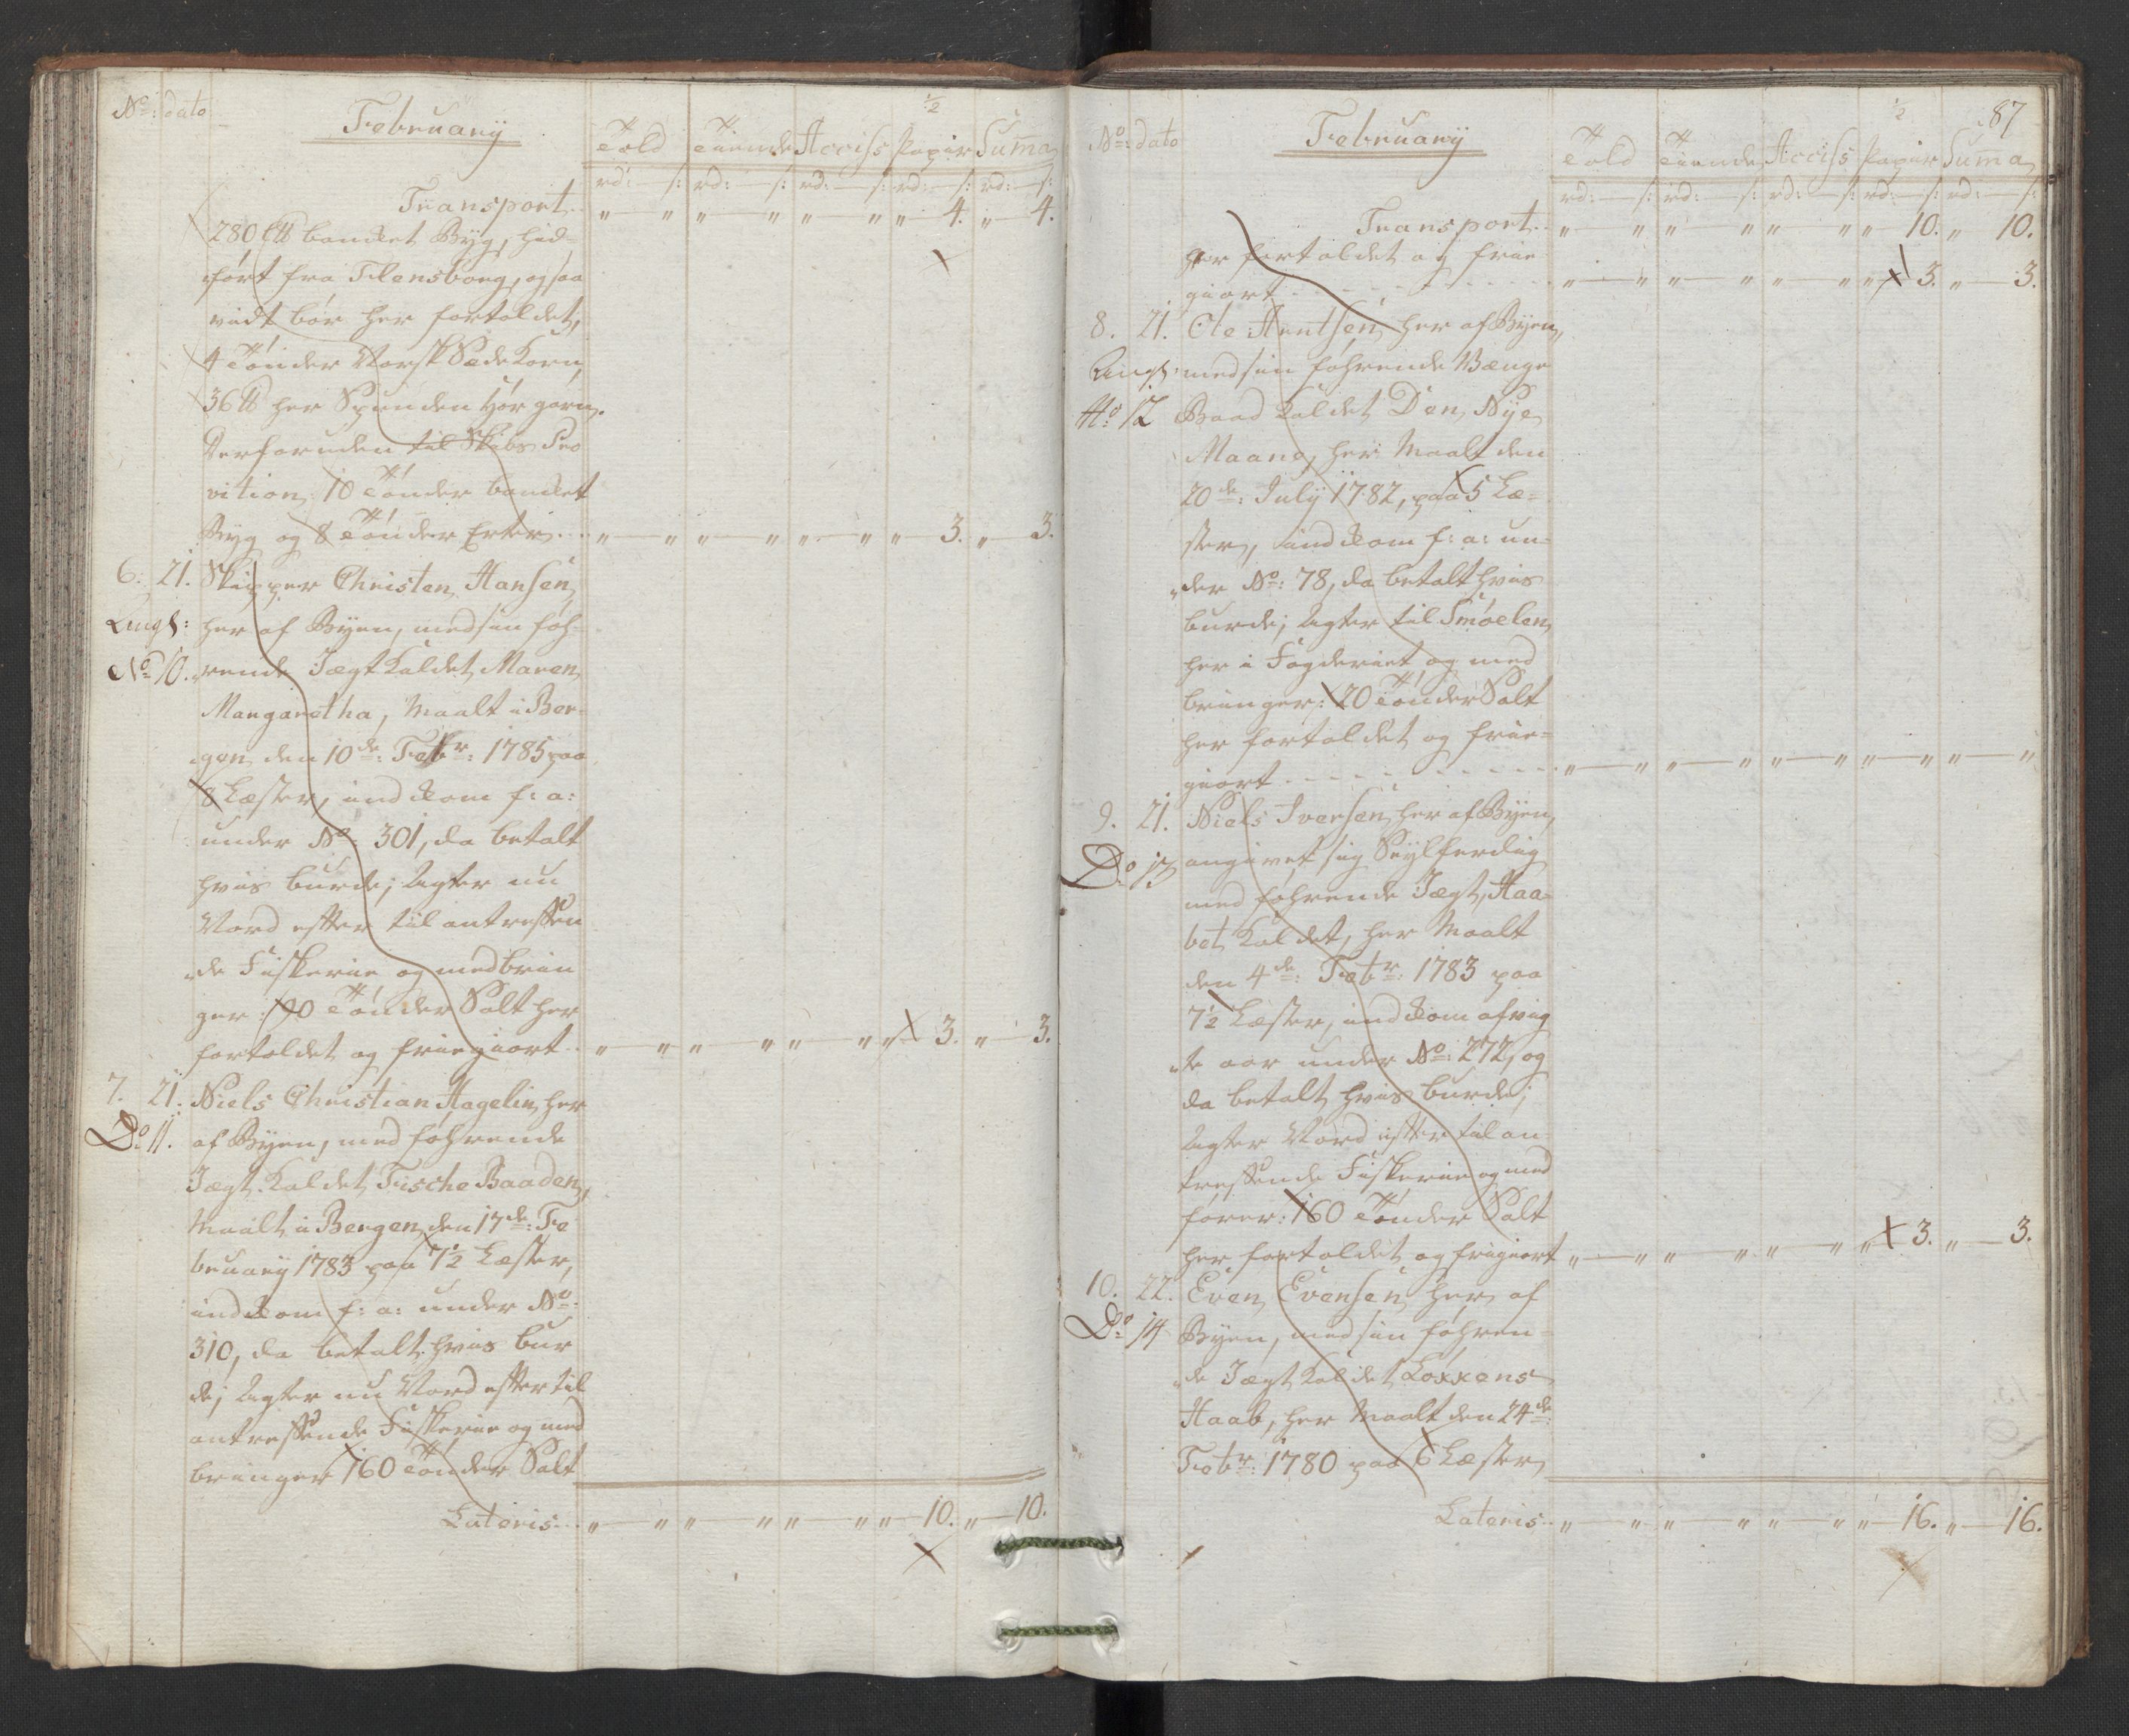 No: dato
February
Told Tiende Acciss Papir Summa
1/2
rd: s: rd: s: rd: s: rd: s: rd: s:
Transport " " " " " " " 4. " 4.
280 bundet Byg, hid-
ført fra Flensborg, og saa
vidt bør her fortoldet,
4 Tønder Norsk Sæde Korn,
36 ℔ her Spunden Hør garn.
Derforuden til Skibs Pro
vition 10 Tønder
Byg og 8 Tønder Erter " " " " " " " 3. " 3.
6. 21. Skipper Christen Hansen
her af Byen, med sin føh-
No 10. rende Jægt kaldet Maren
Margaretha, Maalt i Ber-
gen den 10de: Febr: 1785 paa
8 Læster, indkom f: a:
under No 301, da betalt
hvis burde; agter nu
Nord efter til antreffen
de Fiskerie og medbrin
ger: 190 Tønder Salt her
fortoldet og friegiort " " " " " " " 3. " 3.
7. 21. Niels Christian Hagelin her
Do 11. af Byen, med føhrende
Jægt kaldet Fische Baaden,
Maalt i Bergen den 17de: Fe
bruary 1783 paa 7 1/2 Læster,
indkom f: a: under No:
310, da betalt hvis bur
de; agter nu Nord efter til
antreffende Fiskerie og med
bringer 160 Tønder Salt
Lateris " " " " " " " 10. " 10.
87
No: dato
February
Told Tiende Acciss Papir Summa
1/2
rd: s: rd: s: rd: s: rd: s: rd: s:
Transport " " " " " " " 10. " 10.
her fortoldet og frie
giort " " " " " " " 3. " 3.
8. 21. Ole Arntsen her af Byen,
med sin føhrende Vænge
No 12 Baad kaldet Den Nye
Maane, her Maalt den
20de: July 1782, paa 5 Læ-
ster, indkom f: a: un-
der No: 78, da betalt hvis
burde; agter til Smøelen,
her i Fogderiet og med
bringer: 20 Tønder Salt
her fortoldet og frie-
giort " " " " " " " " " "
9. 21. Niels Iversen her af Byen,
Do 13 angivet sig Seylferdig
med føhrende Jægt, Haa-
bet kaldet, her Maalt
den 4de: Febr: 1783 paa
7 1/2 Læster, indkom afvig
te aar under No: 272, og
da betalt hvis burde;
agter Nord efter til an
treffende Fiskerie og med
fører: 160 Tønder Salt
her fortoldet og frigiort " " " " " " " 3. " 3.
10. 22. Even Evensen her af
Do 14 Byen, med sin føhren-
de Jægt kaldet Løxxens
Haab, her Maalt den 24de:
Febr: 1780 paa 6 Læster,
Lateris " " " " " " " 16. " 16.